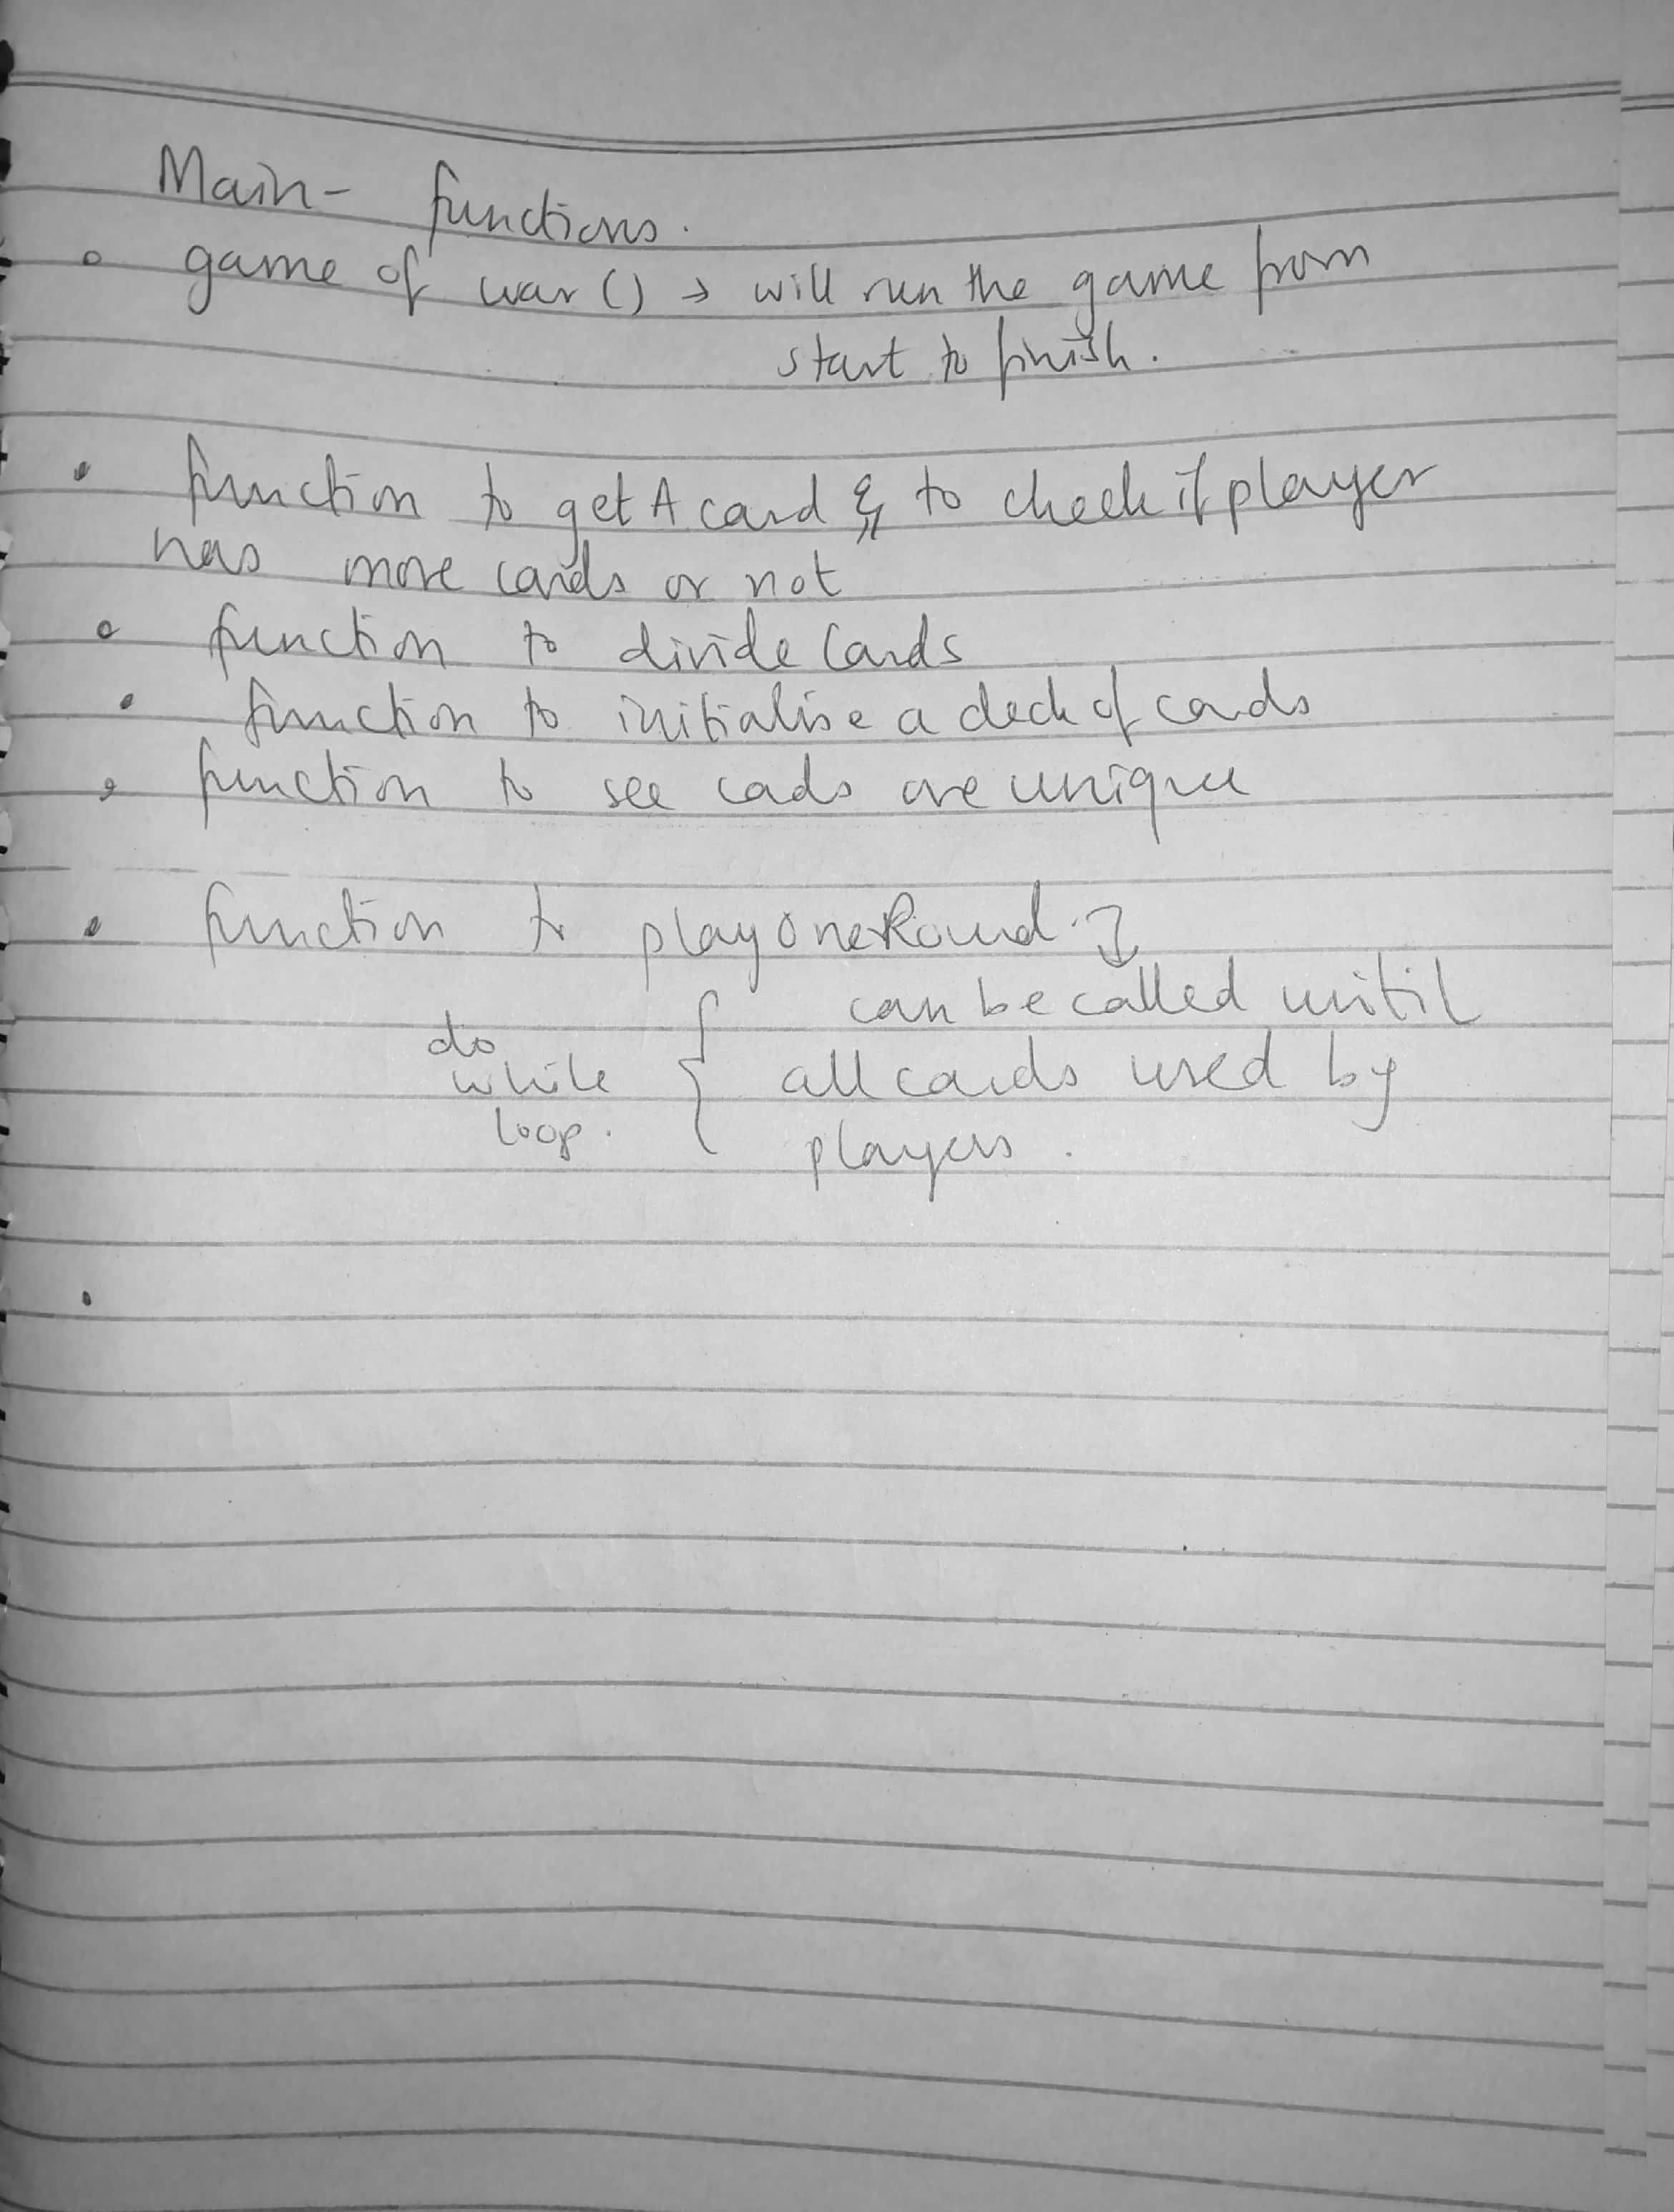 Main- functions.
• game of war () → will run the game from
start to finish.
• function to get A card & to check if player
has more cards or not
• function to divide Cards
• function to initialise a deck of cards
• function to see cads are unique
• function to playOneRound. ↓
can be called until
do
while { all cards used by
loop. players.
•